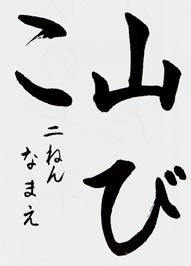 山び
こ
二ねん
なまえ